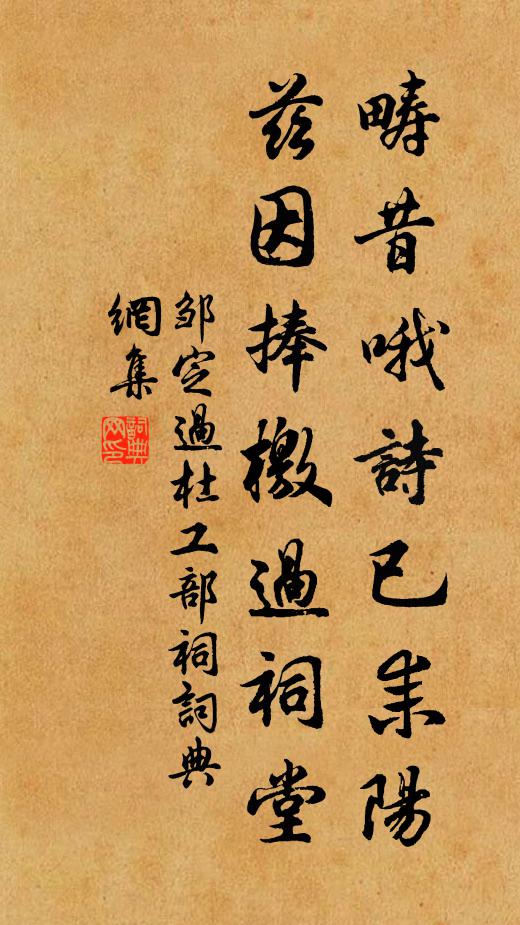 疇昔哦詩已耒陽
茲因捧檄過祠堂
邹定過杜工部祠詞典
網集
詞典
网印